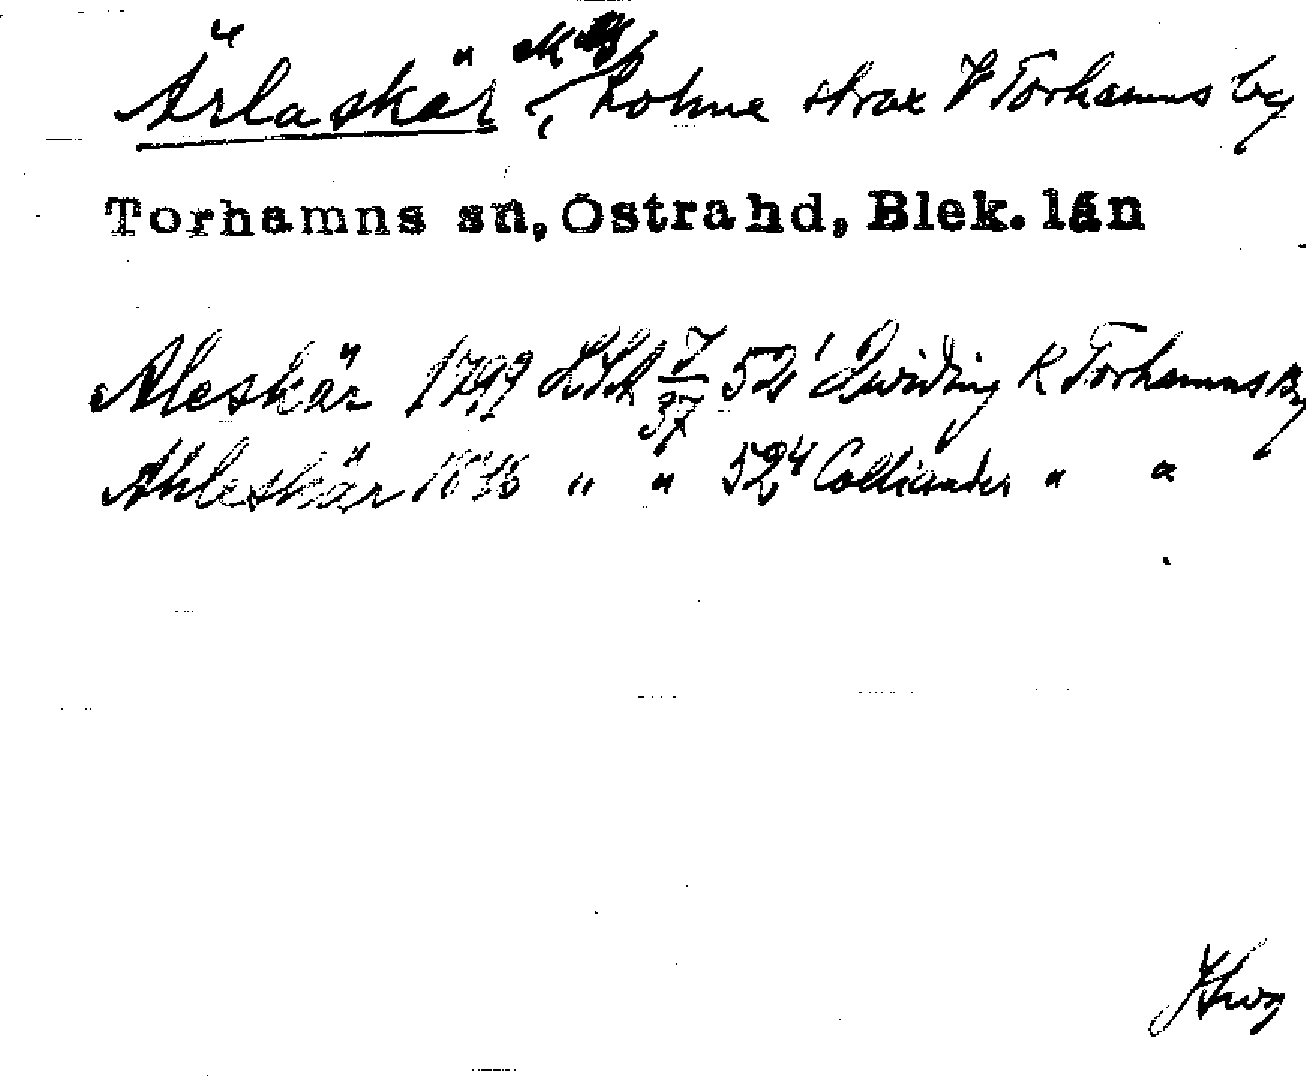 Ärlaskär, holme strax V Torhamns by
Torhamns sn, Östra hd, Blek. län
Aleskär 1799 LSA 7/37 52¹ Qwiding K Torhamns By
Ahleskär 18 " " 52⁴ Colliander " "